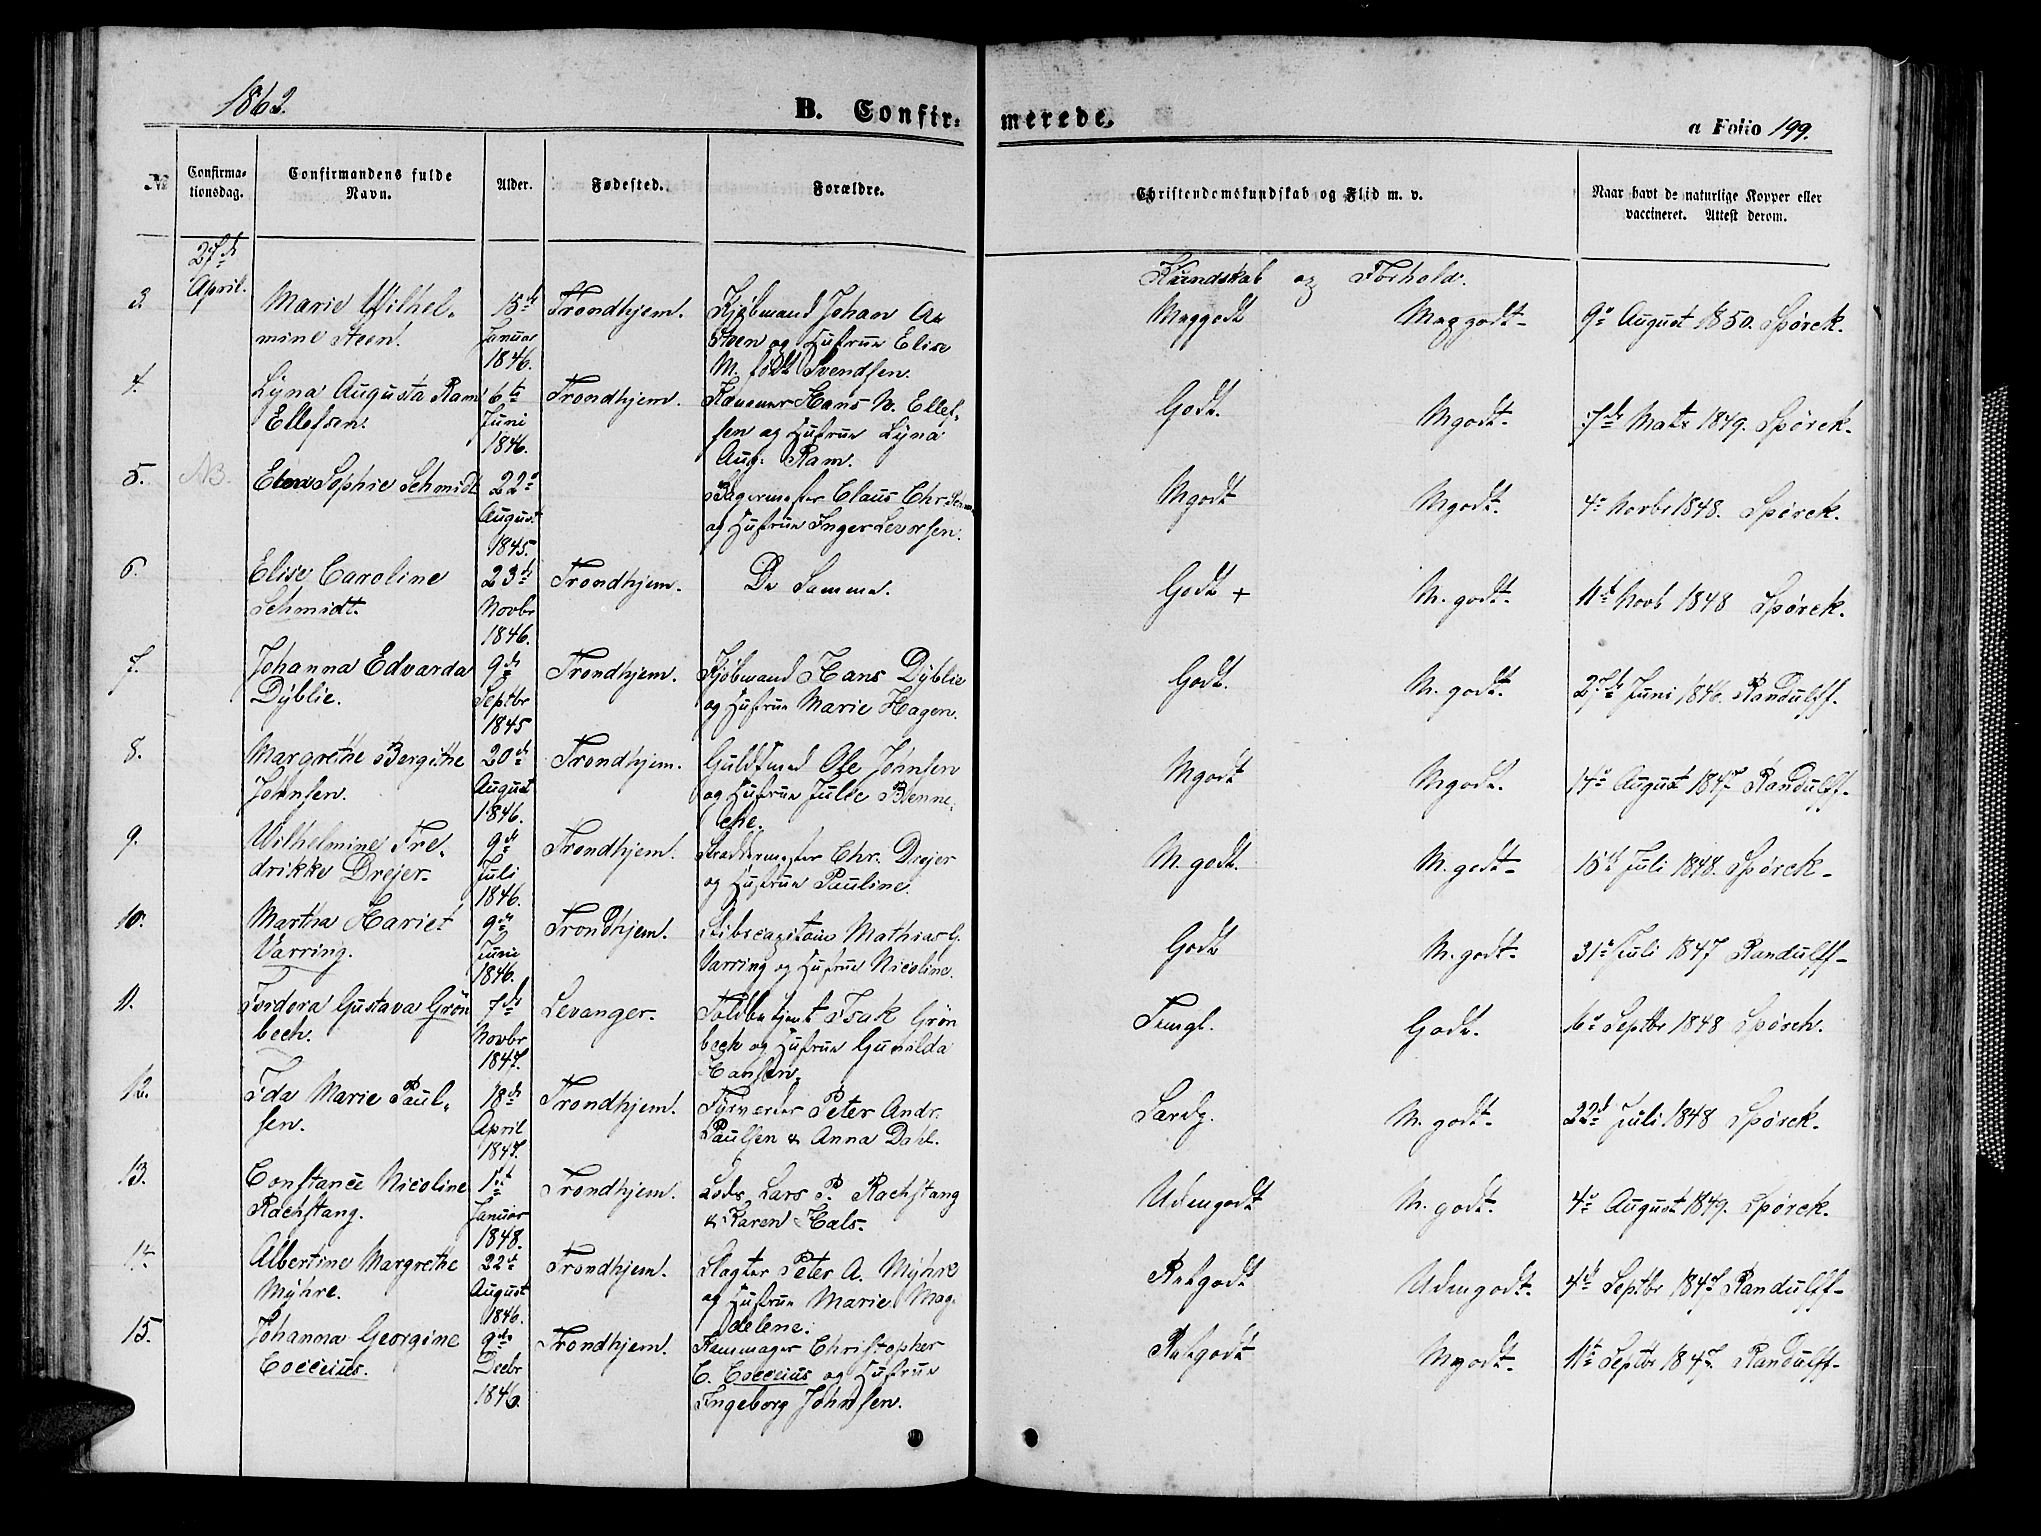 1862.
B. Confir-
merede.
a Folio 199.
№
Confirma-
tionsdag.
Confirmandens fulde
Navn.
Alder.
Fødested.
Forældre.
Christendomskundskab og Flid m. v.
Naar havt de naturlige Kopper eller
vaccineret. Attest derom.
27de
April.
Kundskab og Forhold.
3
Marie Wilhel-
mine Steen.
15de
Januar
1846.
Trondhjem.
Kjøbmand Johan
Steen og Hustrue Elise
M. født Svendsen.
Meggodt
Meggodt
9e August 1850. Spørck.
4.
Lyna Augusta Ram
Ellefsen.
6te
Juni
1846.
Trondhjem.
Hans N. Ellef-
sen og Hustrue Lyna
Aug. Ram.
Godt.
Mgodt
7de Mats 1849. Spørck.
5.
NB.
Sophie Schmidt
22e
August
1845.
Bagermester Claus Chr.
og Hustrue Inger Levorsen.
Mgodt
Mgodt.
4e Novbr 1848. Spørck.
6.
Elise Caroline
Schmidt.
23de
Novbr
1846.
Trondhjem.
De Samme.
Godt +
M. godt.
11te Novb 1848 Spørck.
7.
Johanna Edvarda
Dyblie.
9de
Septbr
1845
Trondhjem.
Kjøbmand Hans Dyblie
og Hustrue Marie Hagen.
Godt.
M. godt.
27de Juni 1846. Randulff.
8.
Margrethe Bergithe
Johnsen.
20de
August
1846.
Trondhjem.
Guldsmed Ole Johnsen
og Hustrue Julie Benne-
che.
Mgodt
Mgodt.
14e August 1847 Randulff.
9.
Wilhelmine Fre-
drikke Drejer.
9de
Juli
1846.
Trondhjem.
Chr. Drejer
og Hustrue Pauline.
M. godt.
M. godt
15de Juli 1848. Spørck
10.
Martha Hariet
Varring.
9de
Juni
1846.
Trondhjem.
Skibscapitain Mathias G.
Varring og Hustrue Nicoline.
Godt
M. godt.
31e Juli 1847 Randulff
11.
Gustava Grön
bech.
7de
Novbr
1847.
Levanger.
Toldbetjent Isak Grön
bech og Hustrue Gunilda
Hansen.
Temgl.
Godt.
6e Septbr 1848 Spørck.
12.
Ida Marie Paul-
sen.
18de
April
1847.
Trondhjem.
Peter Andr.
Paulsen & Anna Dahl.
Særdg.
M. godt.
22de Juli 1848 Spørck.
13.
Constance Nicoline
Rachstang.
1ste
Januar
1848.
Trondhjem.
Lods Lars P. Rachstang
& Karen Hals.
Udmgodt
M. godt.
4e August 1849. Spørck.
14.
Albertine Margrethe
Myhre.
22de
August
1846.
Trondhjem.
Slagter Peter A. Myhre
og Hustrue Marie Mag-
delene.
Retgodt
Udmgodt.
4de Septbr 1847 Randulff
15.
Johanna Georgine
Coccius.
9de
Decbr
1846.
Trondhjem.
Kammager Christopher
C. Coccius og Hustrue
Ingeborg Johnsen.
Retgodt
Mgodt
11te Septbr 1847. Randulff